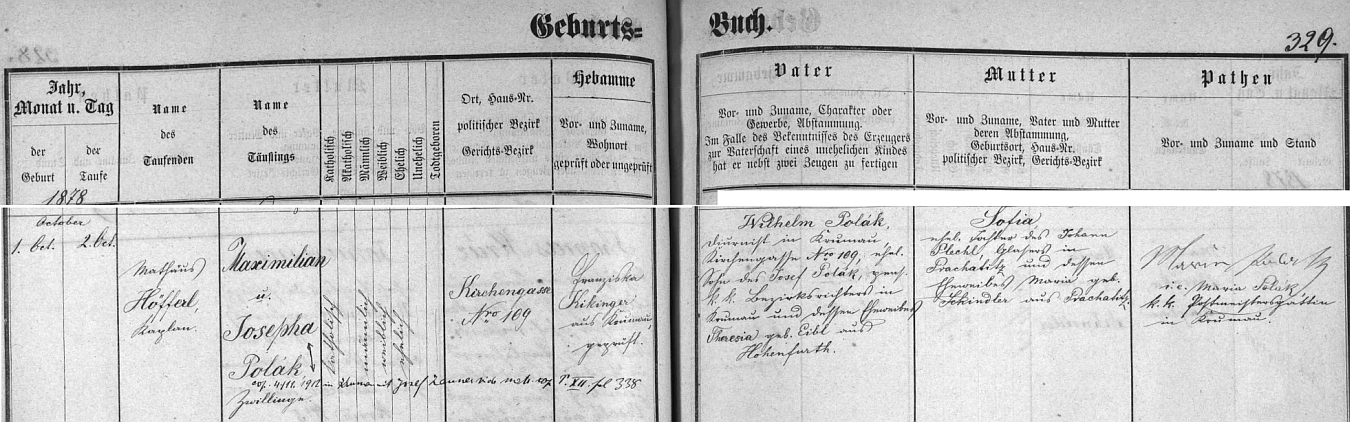 Geburts=
Buch.
329.
Jahr,
Monat u. Tag
der
Geburt
der
Taufe
Name
des
Taufenden
Name
des
Täuflings
Katholisch
Akatholisch
Männlich
Weiblich
Ehelich
Unehelich
Todtgeboren
Ort, Haus-Nr.
politischer Bezirk
Gerichts-Bezirk
Hebamme
Vor- und Zuname,
Wohnort
geprüft oder ungeprüft
Vater
Vor- und Zuname, Charakter oder
Gewerbe, Abstammung.
Im Falle des Bekenntnisses des Erzeugers
zur Vaterschaft eines unehelichen Kindes
hat er nebst zwei Zeugen zu fertigen
Mutter
Vor- und Zuname, Vater und Mutter
deren Abstammung,
Geburtsort, Haus-Nr.
politischer Bezirk, Gerichts-Bezirk
Pathen
Vor- und Zuname und Stand
1878
October
1. Oct.
2. Oct.
Mathäus
Höfferl,
Kaplan.
Maximilian
u.
Josepha
Polák
Zwillinge.
katholisch
männlich
weiblich
ehelich
Kirchengasse
Nro 109
Franziska
Kikinger
aus Krumau,
geprüft.
cop. 4/11. 1912 in mit Josef
T. XII. fol 338
Wilhelm Polák,
Diurnist in Krumau
Kirchengasse Nro 109, ehel.
Sohn des Josef Polák, pens.
k. k. Bezirksrichters in
Krumau und dessen Eheweibes
Theresia geb. Eibl aus
Hohenfurth.
Sofia
ehel. Tochter des Johann
Plechl, Glasers in
Prachatitz und dessen
Eheweibes Maria geb.
Schindler aus Prachatitz.
Marie Polak
v. c. Maria Polák
k. k. Postmeistersgattin
in Krumau.